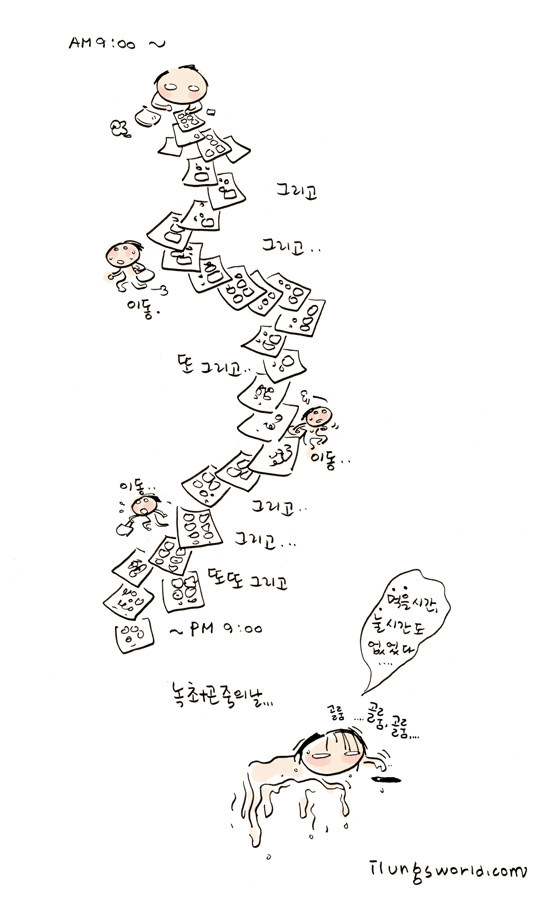 AM 9:00 ~
그리고
그리고..
이동.
또 그리고..
이동..
이동..
그리고..
그리고...
또또 그리고
~ PM 9:00
녹초+곤죽의날...
먹을시간,
놀시간도
없었다
....
골룸 ....골룸, 골룸,...
Tlungsworld.com